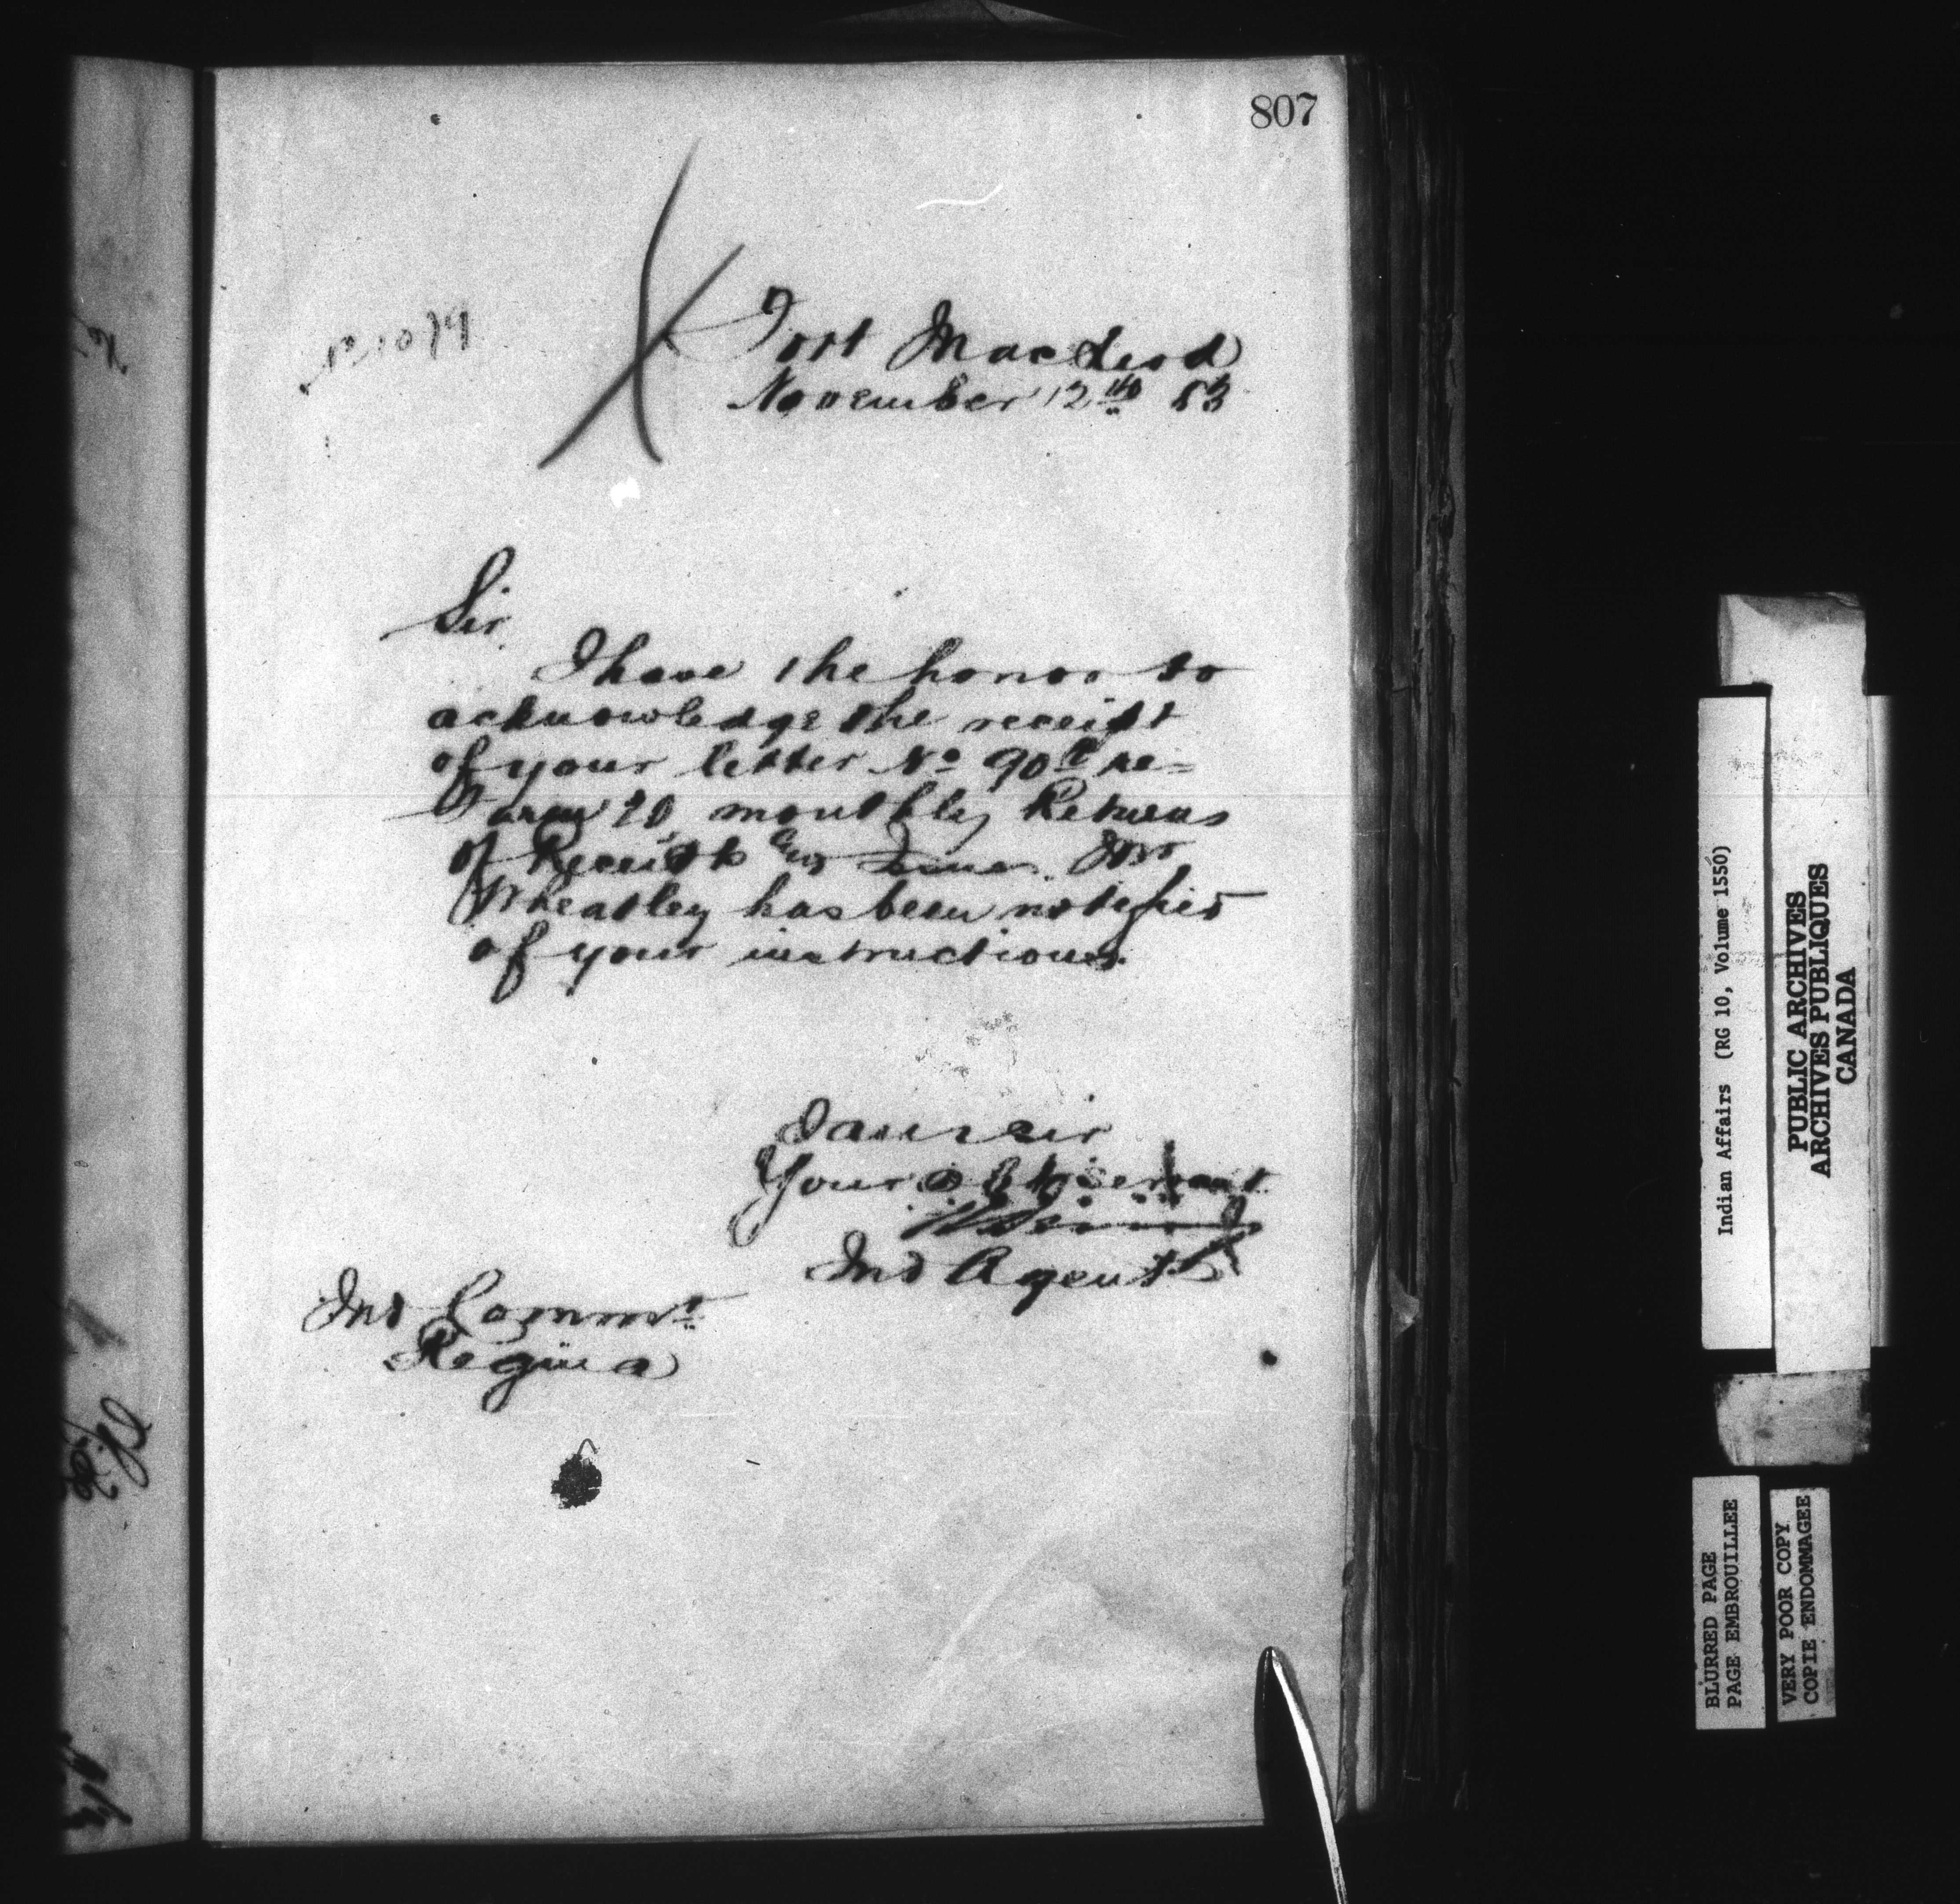 807
Fort Macleod
November 12th 83
Sir
I have the honor to
acknowledge the receipt
of your letter No 90 re=
Farm 20 monthly Returns
of Receipts & Issues. Mr
Wheatley has been notified
of your instructions.
I am Sir
Your obt servant
Ind Agent
Ind Commr
Regina
Indian Affairs (RG 10, Volume 1550)
PUBLIC ARCHIVES
ARCHIVES PUBLIQUES
CANADA
BLURRED PAGE
PAGE EMBROUILLEE
VERY POOR COPY
COPIE ENDOMMAGEE